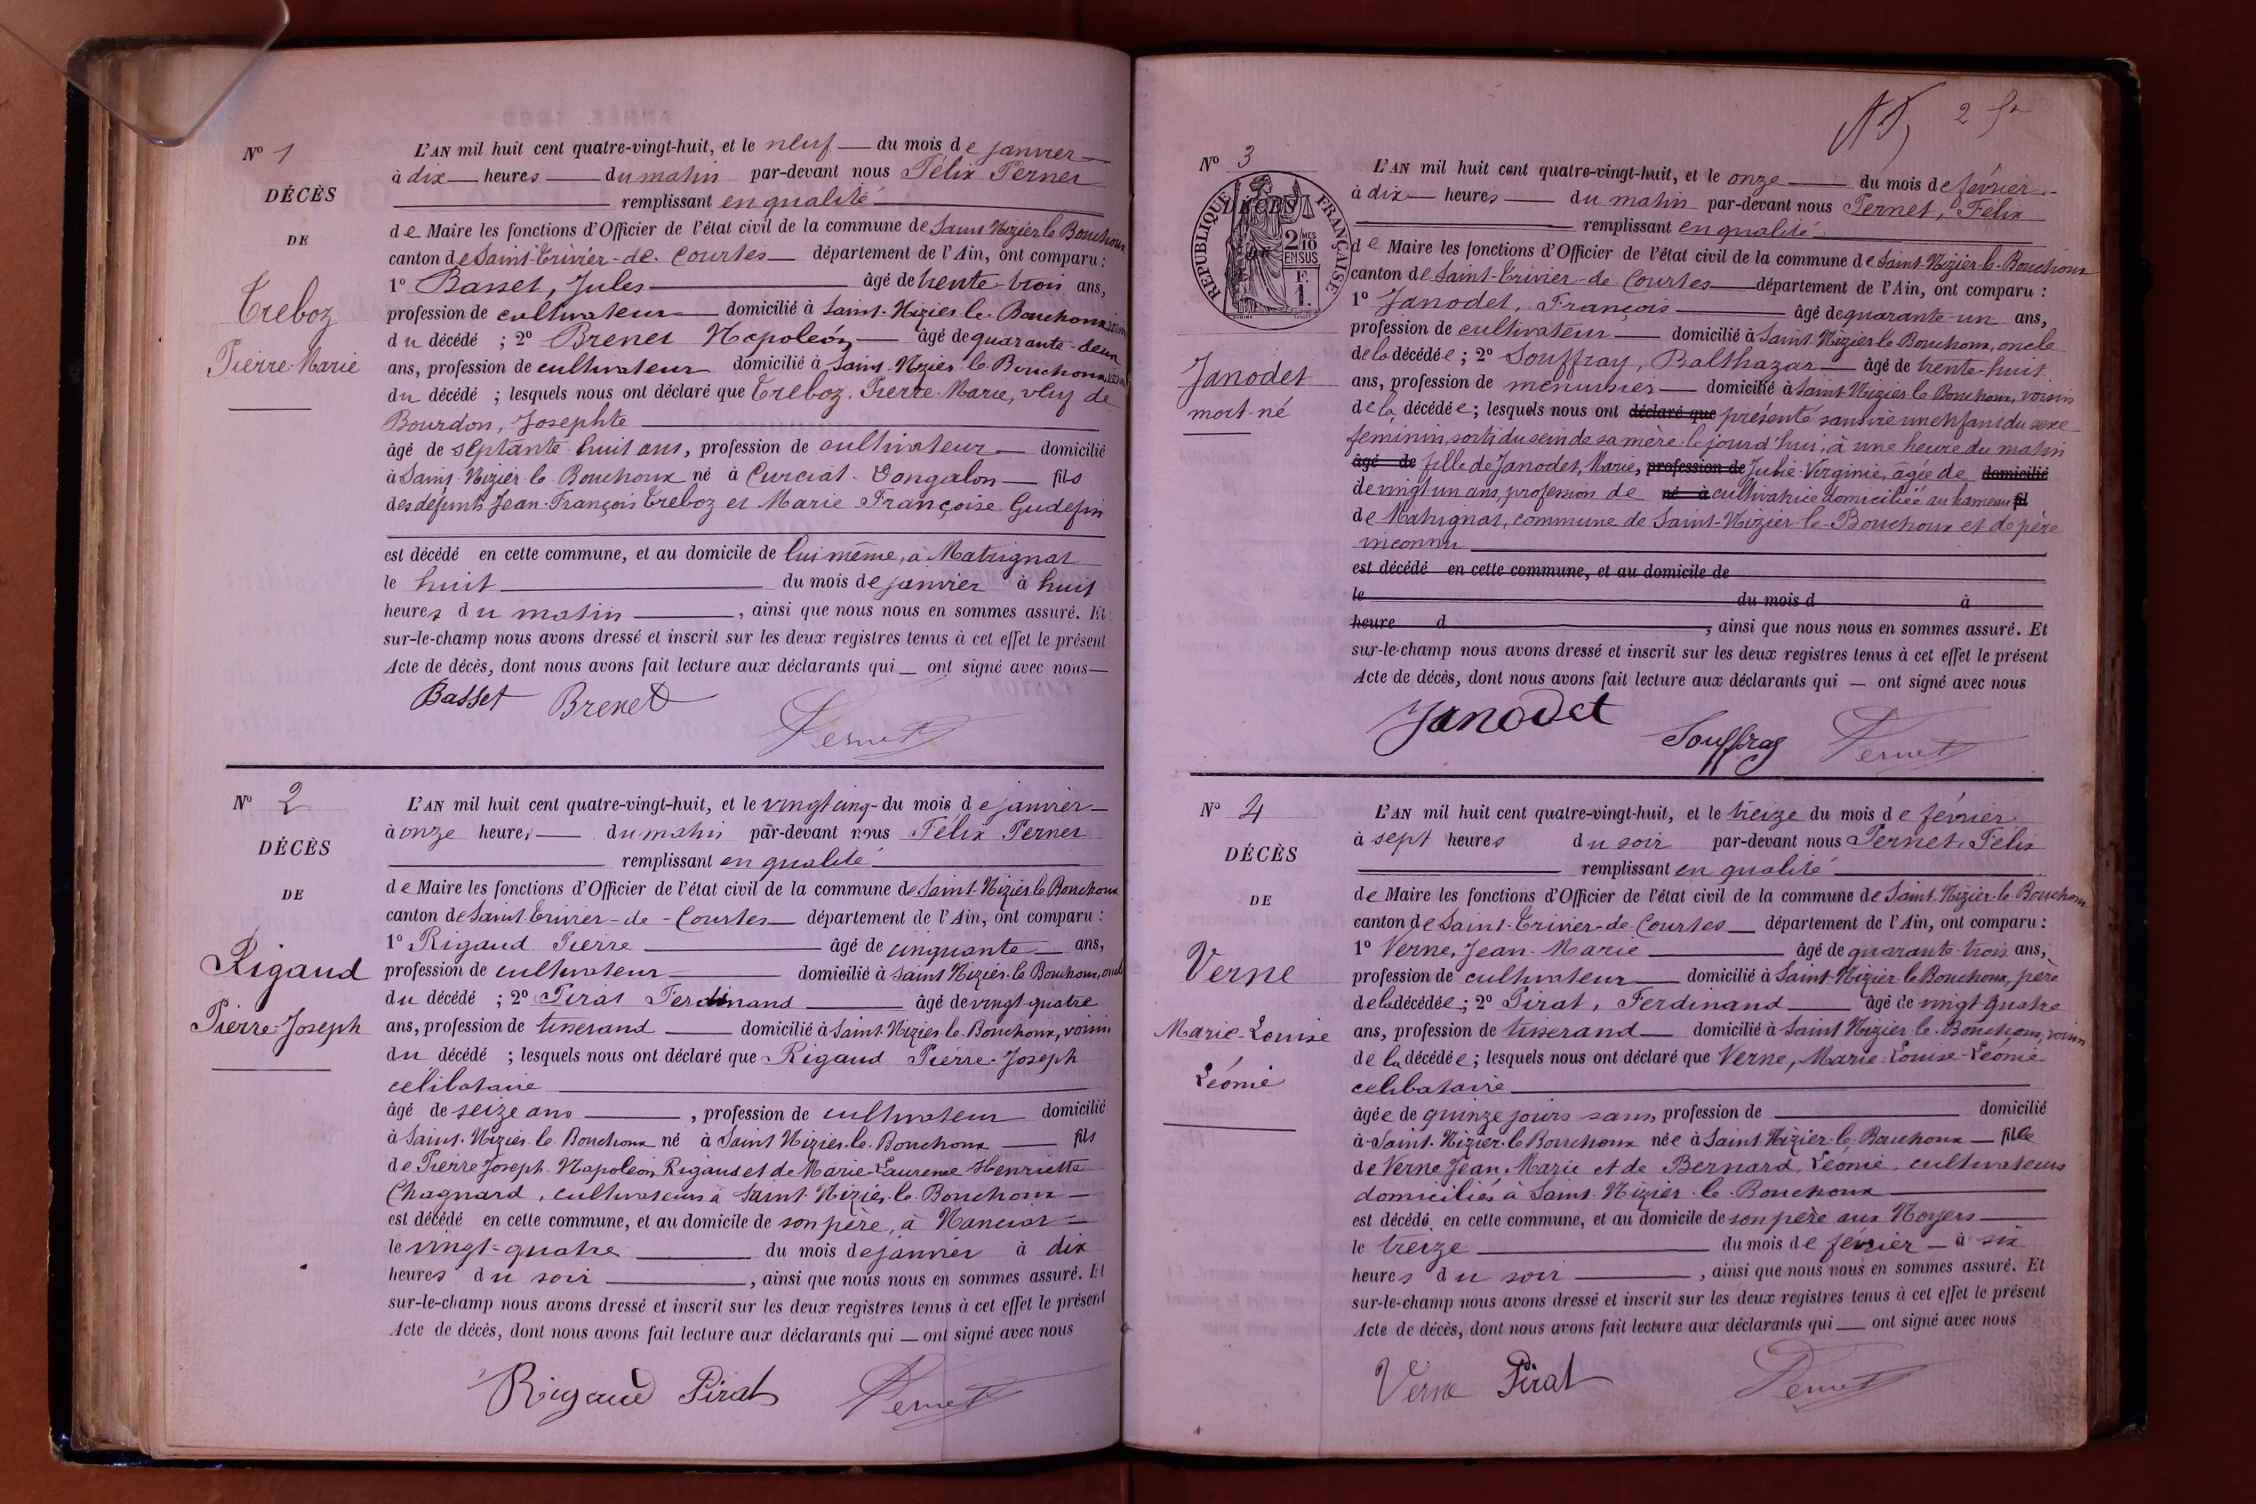 Nº 1
DÉCÈS
DE
Treboz
Pierre-Marie
L'AN mil huit cent quatre-vingt-huit, et le neuf — du mois de janvier —
à dix — heures — du matin par-devant nous Félix Pernet
— remplissant en qualité —
de Maire les fonctions d'Officier de l'état civil de la commune de Saint-Nizier le Bouchoux
canton de Saint-Trivier-de-Courtes — département de l'Ain, ont comparu :
1º Basset, Jules — âgé de trente-trois ans,
profession de cultivateur — domicilié à Saint-Nizier-le-Bouchoux, voisin
du décédé ; 2º Brenet Napoléon — âgé de quarante-deux
ans, profession de cultivateur domicilié à Saint-Nizier-le-Bouchoux, voisin
du décédé ; lesquels nous ont déclaré que Treboz, Pierre-Marie, veuf de
Bourdon, Josephte —
âgé de septante-huit ans, profession de cultivateur — domicilié
à Saint-Nizier-le-Bouchoux né à Curciat-Dongalon — fils
des défunts Jean-François Treboz et Marie Françoise Gudefin
est décédé en cette commune, et au domicile de lui même, à Matrignat
le huit — du mois de janvier à huit
heures du matin —, ainsi que nous nous en sommes assuré. Et
sur-le-champ nous avons dressé et inscrit sur les deux registres tenus à cet effet le présent
Acte de décès, dont nous avons fait lecture aux déclarants qui — ont signé avec nous —
Basset Brenet Pernet
Nº 2
DÉCÈS
DE
Rigaud
Pierre-Joseph
L'AN mil huit cent quatre-vingt-huit, et le vingt cinq - du mois de janvier —
à onze heures — du matin par-devant nous Félix Pernet
— remplissant en qualité —
de Maire les fonctions d'Officier de l'état civil de la commune de Saint-Nizier le Bouchoux
canton de Saint-Trivier-de-Courtes — département de l'Ain, ont comparu :
1º Rigaud Pierre — âgé de cinquante — ans,
profession de cultivateur — domicilié à Saint Nizier-le-Bouchoux, oncle
du décédé ; 2º Pirat Ferdinand — âgé de vingt-quatre
ans, profession de tisserand — domicilié à Saint-Nizier-le-Bouchoux, voisin
du décédé ; lesquels nous ont déclaré que Rigaud Pierre-Joseph
célibataire —
âgé de seize ans —, profession de cultivateur domicilié
à Saint-Nizier-le-Bouchoux né à Saint Nizier-le-Bouchoux — fils
de Pierre Joseph-Napoléon Rigaud et de Marie-Laurence Henriette
Chagnard, cultivateurs à Saint-Nizier-le-Bouchoux —
est décédé en cette commune, et au domicile de son père, à Manciat —
le vingt-quatre — du mois de janvier à dix
heures du soir —, ainsi que nous nous en sommes assuré. Et
sur-le-champ nous avons dressé et inscrit sur les deux registres tenus à cet effet le présent
Acte de décès, dont nous avons fait lecture aux déclarants qui — ont signé avec nous
Rigaud Pirat Pernet
2
Nº 3
RÉPUBLIQUE FRANÇAISE
2/10 EN SUS
1 F.
Janodet
mort-né
L'AN mil huit cent quatre-vingt-huit, et le onze — du mois de février —
à dix — heures — du matin par-devant nous Pernet, Félix
— remplissant en qualité —
de Maire les fonctions d'Officier de l'état civil de la commune de Saint-Nizier-le-Bouchoux
canton de Saint-Trivier-de Courtes — département de l'Ain, ont comparu :
1º Janodet, François — âgé de quarante-un ans,
profession de cultivateur — domicilié à Saint Nizier le Bouchoux, oncle
de la décédée ; 2º Souffray, Balthazar — âgé de trente-huit
ans, profession de menuisier — domicilié à Saint-Nizier-le-Bouchoux, voisin
de la décédée ; lesquels nous ont déclaré que présenté sans vie un enfant du sexe
féminin, sorti du sein de sa mère le jourd'hui, à une heure du matin
âgé de fille de Janodet, Marie, profession de Julie-Virginie, âgée de domicilié
de vingt un ans, profession de né à cultivatrice domiciliée au hameau fil
de Matrignat, commune de Saint-Nizier-le-Bouchoux et de père
inconnu —
est décédé en cette commune, et au domicile de
le du mois d à
heure d, ainsi que nous nous en sommes assuré. Et
sur-le-champ nous avons dressé et inscrit sur les deux registres tenus à cet effet le présent
Acte de décès, dont nous avons fait lecture aux déclarants qui — ont signé avec nous
Janodet Souffray Pernet
Nº 4
DÉCÈS
DE
Verne
Marie-Louise
Léonie
L'AN mil huit cent quatre-vingt-huit, et le treize du mois de février
à sept heures du soir par-devant nous Pernet, Félix
— remplissant en qualité —
de Maire les fonctions d'Officier de l'état civil de la commune de Saint-Nizier-le-Bouchoux
canton de Saint-Trivier-de Courtes — département de l'Ain, ont comparu :
1º Verne, Jean-Marie — âgé de quarante-trois ans,
profession de cultivateur — domicilié à Saint-Nizier le Bouchoux, père
de la décédée ; 2º Pirat, Ferdinand — âgé de vingt quatre
ans, profession de tisserand — domicilié à Saint Nizier-le-Bouchoux, voisin
de la décédée ; lesquels nous ont déclaré que Verne, Marie-Louise-Léonie
célibataire —
âgée de quinze jours sans profession de — domicilié
à Saint-Nizier-le-Bouchoux née à Saint Nizier-le-Bouchoux — fille
de Verne Jean-Marie et de Bernard, Léonie, cultivateurs
domiciliés à Saint-Nizier-le-Bouchoux —
est décédé en cette commune, et au domicile de son père aux Noyers —
le treize — du mois de février — à six
heures du soir —, ainsi que nous nous en sommes assuré. Et
sur-le-champ nous avons dressé et inscrit sur les deux registres tenus à cet effet le présent
Acte de décès, dont nous avons fait lecture aux déclarants qui — ont signé avec nous
Verne Pirat Pernet